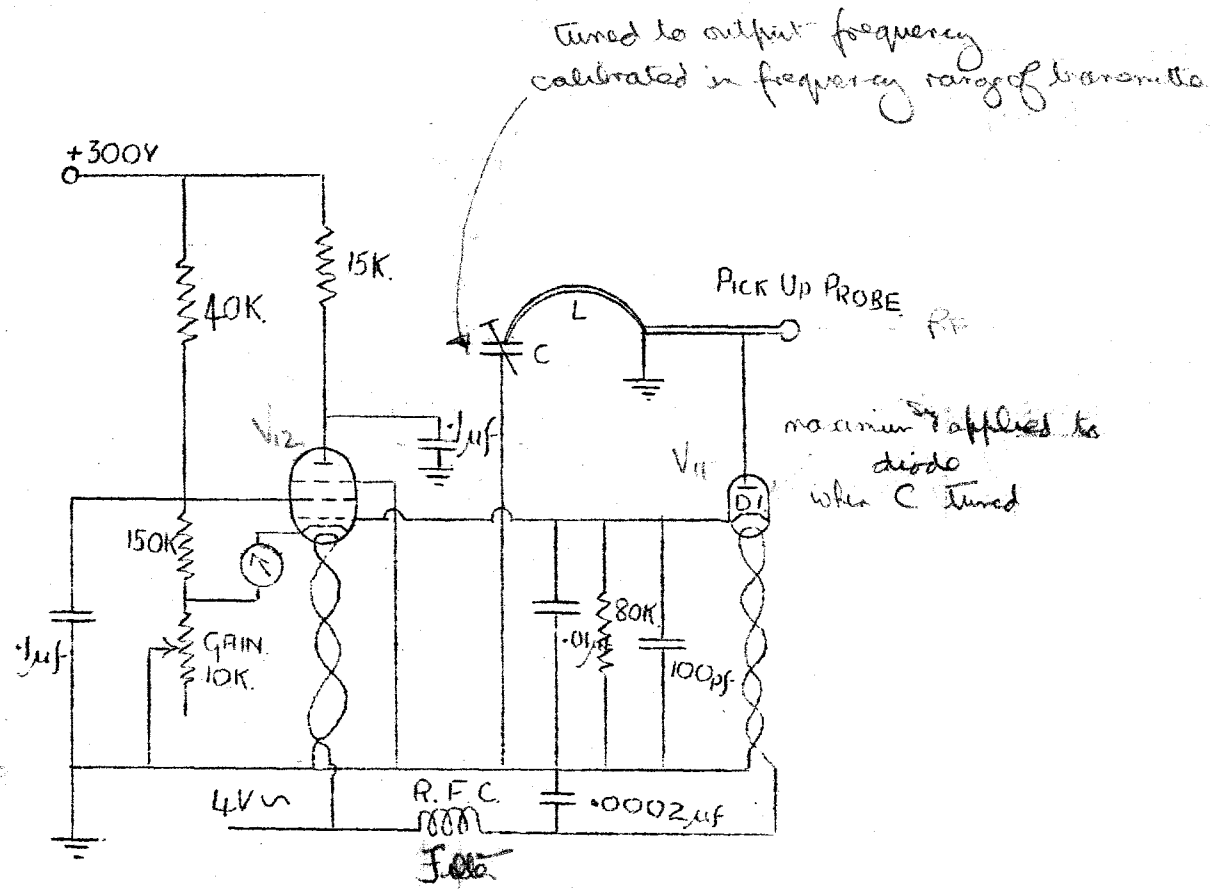 tuned to output frequency
calibrated in frequency range of transmitte
+300V
15K.
40K.
L
PICK UP PROBE
RF
C
V12
.1µf
V11
maximum applied to
diode
when C tuned
D1
150K
.1µf
GAIN.
10K.
.01µf
80K.
100pf
4V~
R.F.C.
.0002µf